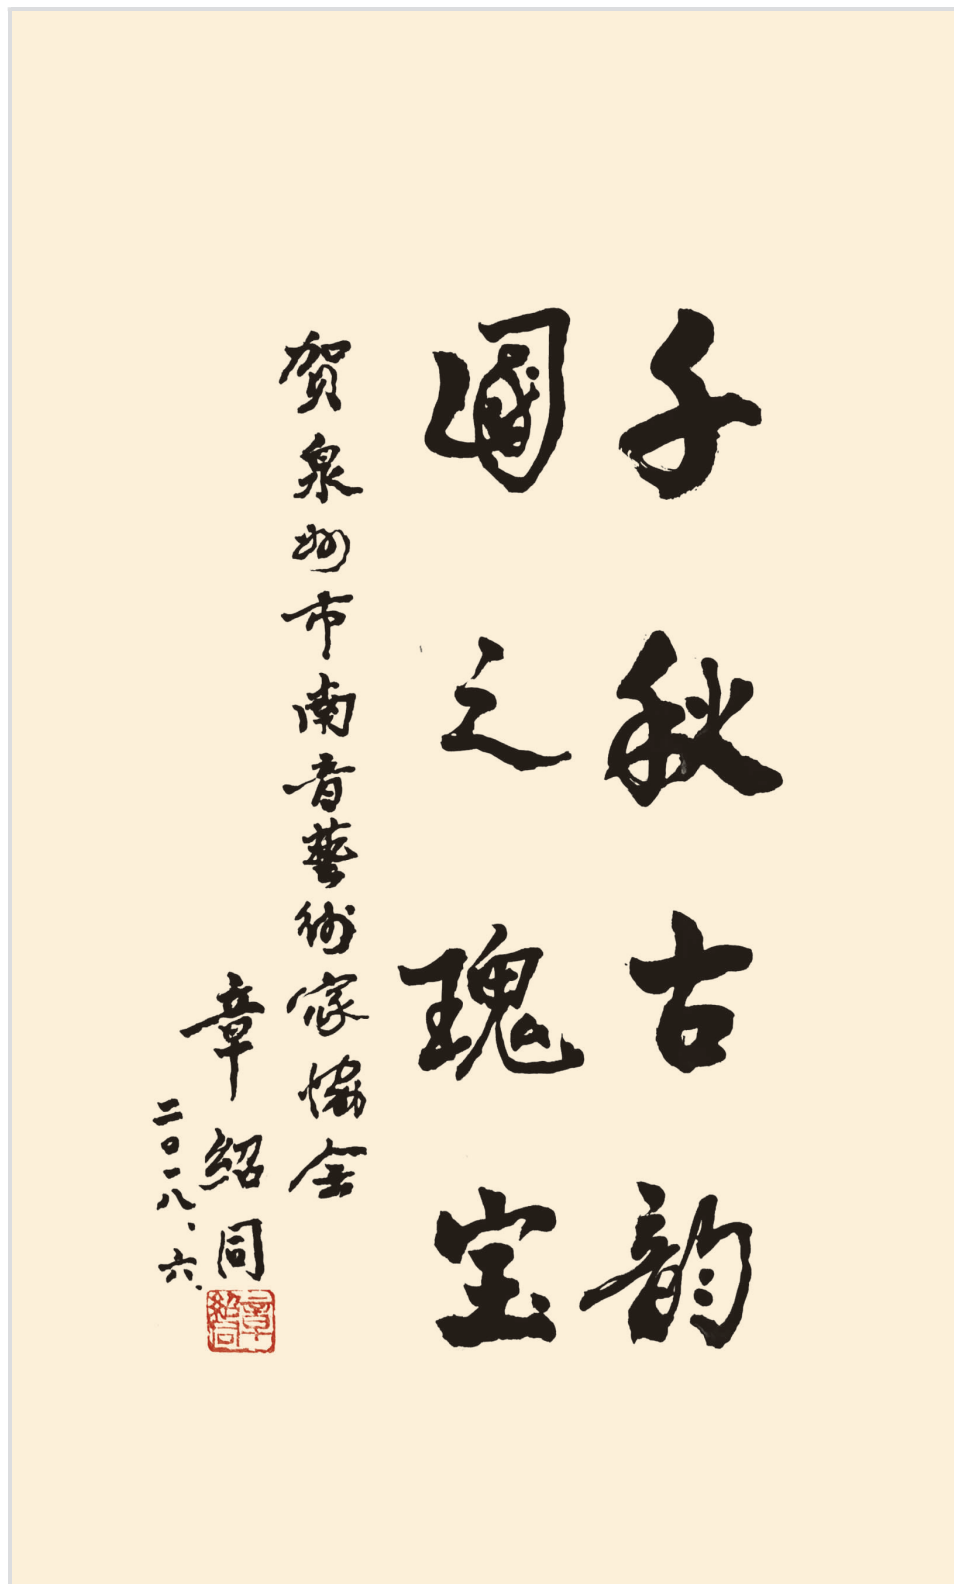 千秋古韵
國之瑰宝
贺泉州市南音藝術家協会
章紹同
二〇一八、六、
章紹同